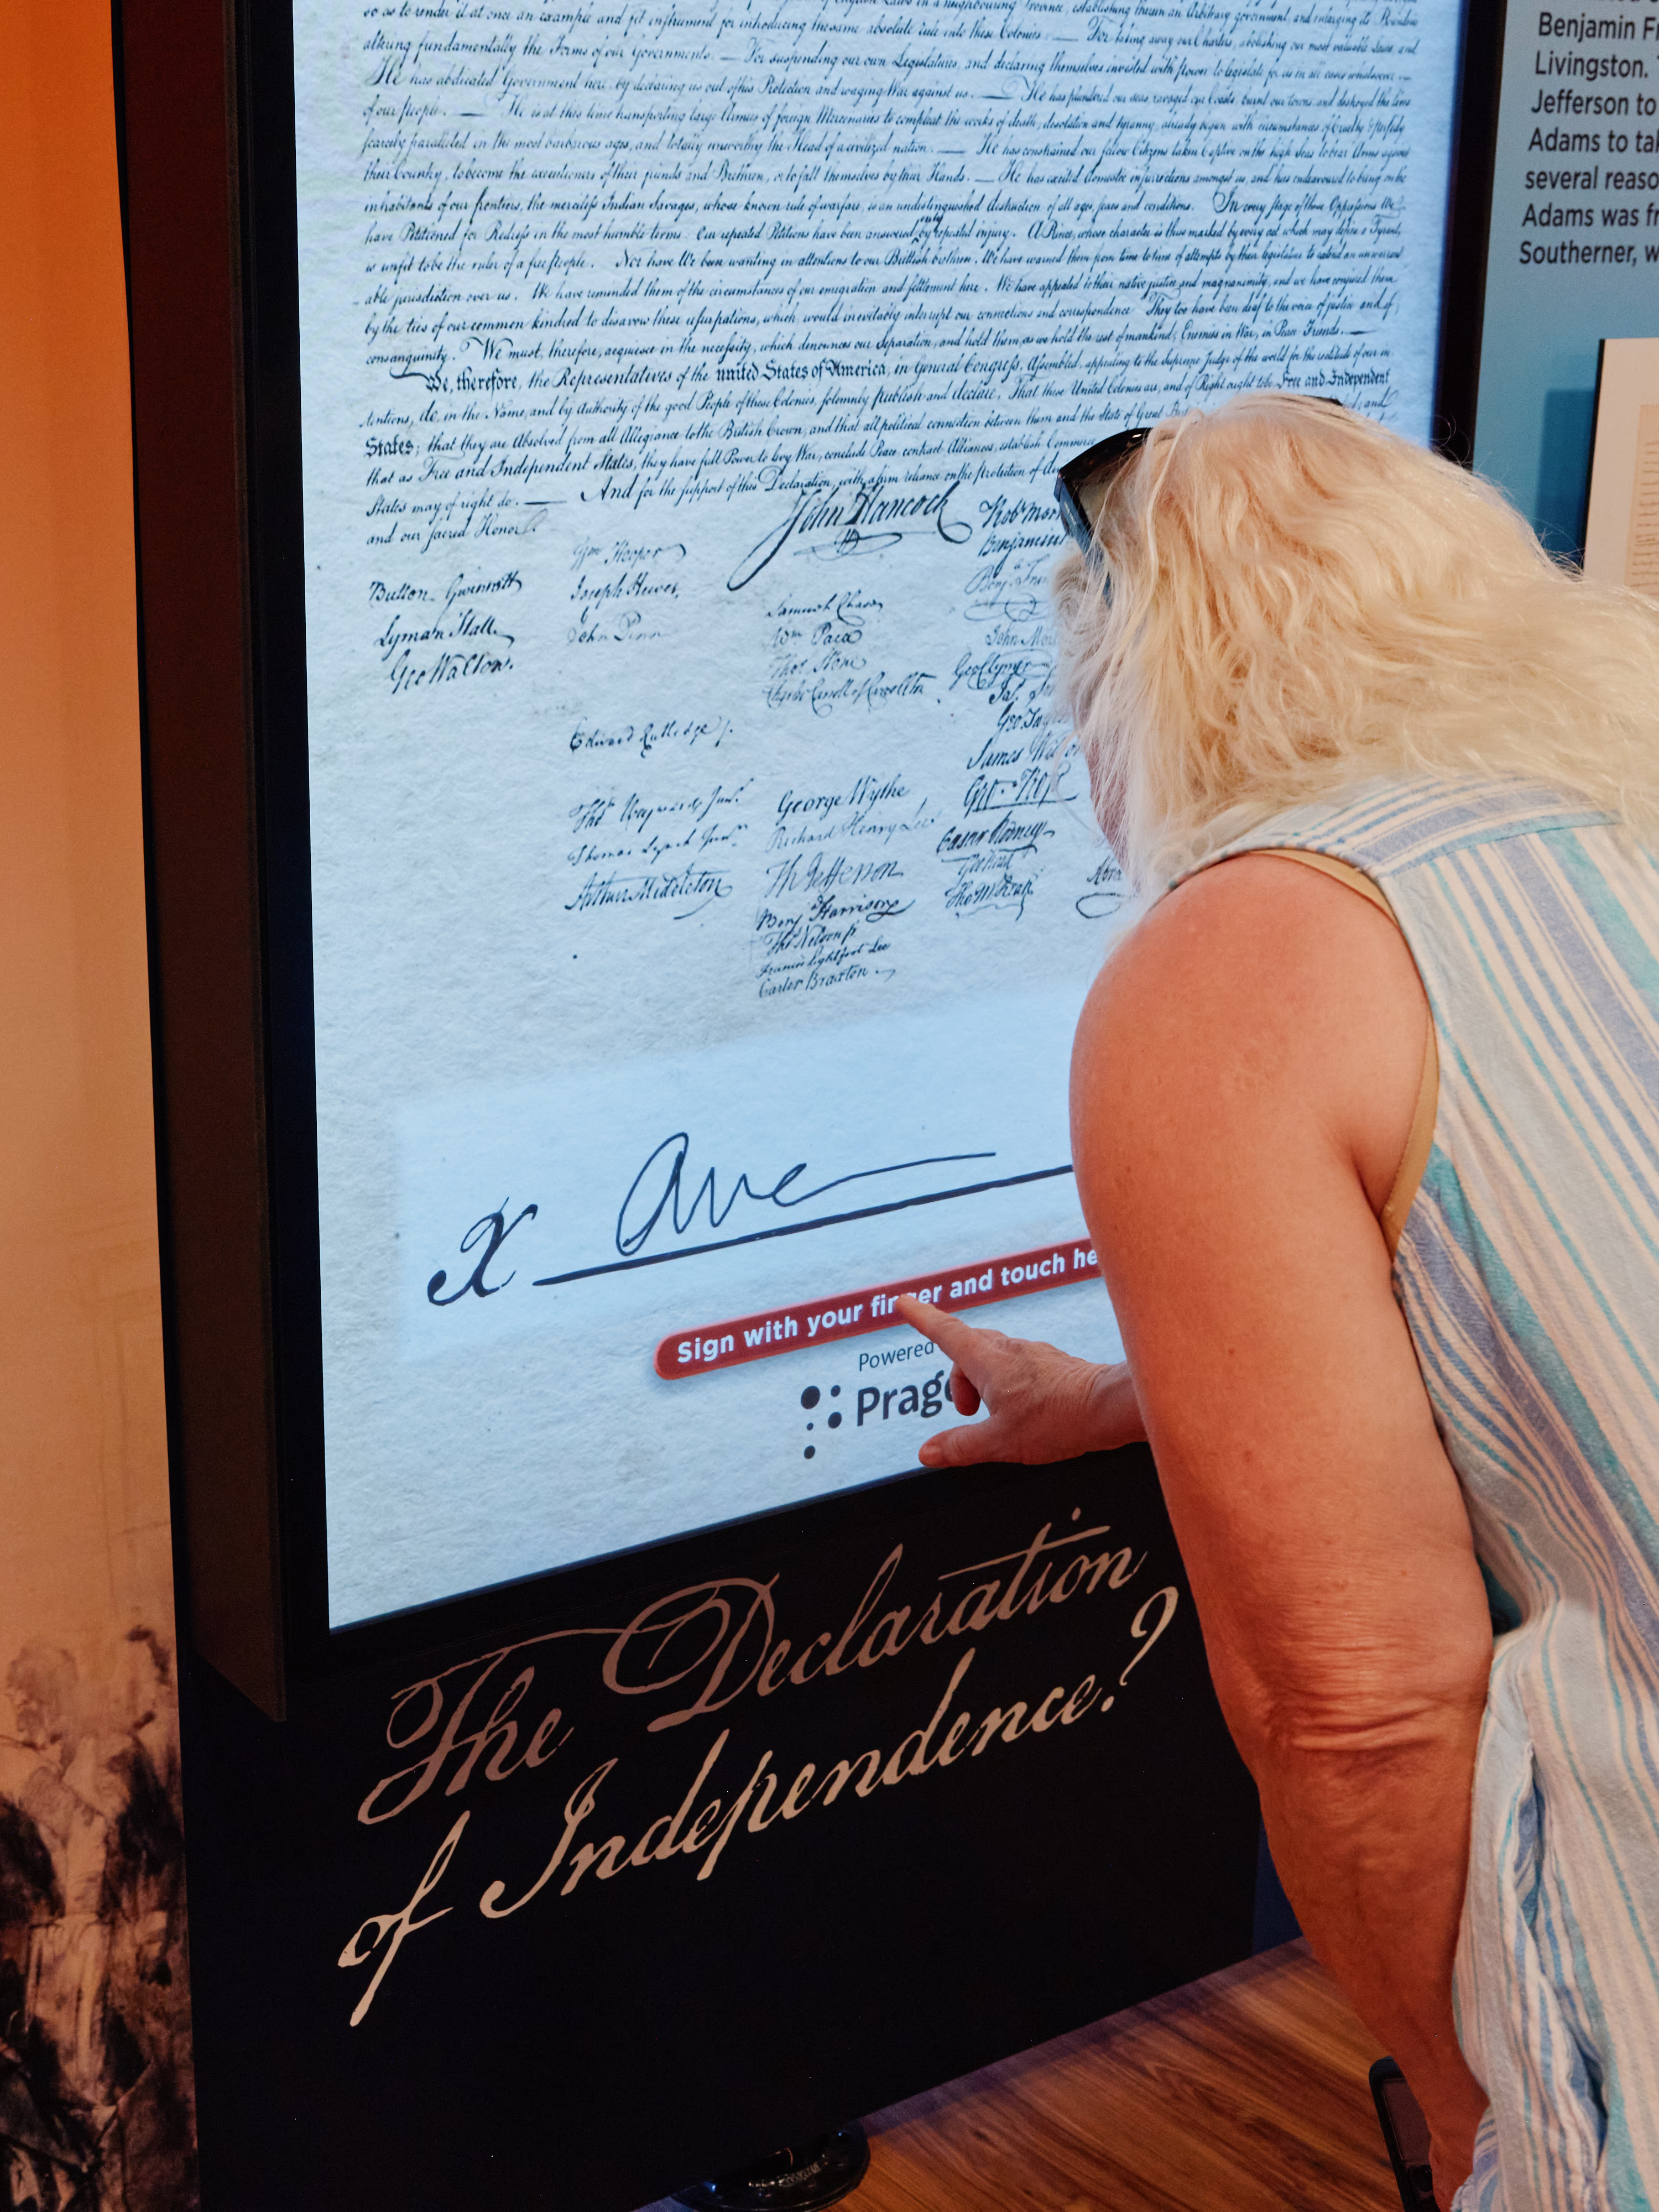 so as to render it at once an example and fit instrument for introducing the same absolute rule into these Colonies: — For taking away our Charters, abolishing our most valuable Laws, and
altering fundamentally the Forms of our Governments: — For suspending our own Legislatures, and declaring themselves invested with power to legislate for us in all cases whatsoever. —
He has abdicated Government here, by declaring us out of his Protection and waging War against us. — He has plundered our seas, ravaged our Coasts, burnt our towns, and destroyed the lives
of our people. — He is at this time transporting large Armies of foreign Mercenaries to compleat the works of death, desolation and tyranny, already begun with circumstances of Cruelty & perfidy
scarcely paralleled in the most barbarous ages, and totally unworthy the Head of a civilized nation. — He has constrained our fellow Citizens taken Captive on the high Seas to bear Arms against
their Country, to become the executioners of their friends and Brethren, or to fall themselves by their Hands. — He has excited domestic insurrections amongst us, and has endeavoured to bring on the
inhabitants of our frontiers, the merciless Indian Savages, whose known rule of warfare, is an undistinguished destruction of all ages, sexes and conditions. In every stage of these Oppressions We
have Petitioned for Redress in the most humble terms: Our repeated Petitions have been answered only by repeated injury. A Prince, whose character is thus marked by every act which may define a Tyrant,
is unfit to be the ruler of a free people. Nor have We been wanting in attentions to our Brittish brethren. We have warned them from time to time of attempts by their legislature to extend an unwarrant
able jurisdiction over us. We have reminded them of the circumstances of our emigration and settlement here. We have appealed to their native justice and magnanimity, and we have conjured them
by the ties of our common kindred to disavow these usurpations, which, would inevitably interrupt our connections and correspondence. They too have been deaf to the voice of justice and of
consanguinity. We must, therefore, acquiesce in the necessity, which denounces our Separation, and hold them, as we hold the rest of mankind, Enemies in War, in Peace Friends. —
We, therefore, the Representatives of the united States of America, in General Congress, Assembled, appealing to the Supreme Judge of the world for the rectitude of our in
tentions, do, in the Name, and by Authority of the good People of these Colonies, solemnly publish and declare, That these United Colonies are, and of Right ought to be Free and Independent
States; that they are Absolved from all Allegiance to the British Crown, and that all political connection between them and the State of Great
that as Free and Independent States, they have full Power to levy War, conclude Peace, contract Alliances, establish Commerce
States may of right do. — And for the support of this Declaration, with a firm reliance on the Protection of
and our sacred Honor.
John Hancock
Button Gwinnett
Lyman Hall
Geo Walton.
Wm Hooper
Joseph Hewes,
John Penn
Edward Rutledge
Thos Heyward Junr.
Thomas Lynch Junr.
Arthur Middleton
Samuel Chase
Wm Paca
Thos Stone
Charles Carroll of Carrollton
George Wythe
Richard Henry Lee
Th Jefferson
Benj Harrison
Thos Nelson jr
Francis Lightfoot Lee
Carter Braxton
Robt
Benjamin
Benj
John
Geo Clymer
Jas.
Geo.
James
Geo. Ross
Caesar Rodney
Geo Read
Tho M:Kean
X
Sign with your finger and touch
Powered
The Declaration
of Independence?
Benjamin
Livingston.
Jefferson to
Adams to
several
Adams was
Southerner,